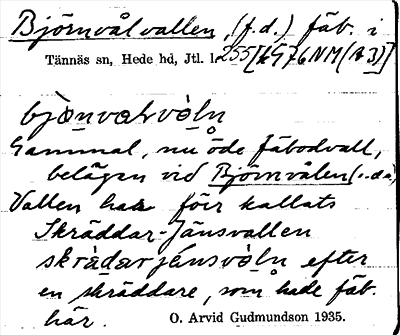 Björnvålvallen, (f.d.) fäb. i
Tännäs sn, Hede hd, Jtl. l. 255
bjǫnvalvòln
Gammal, nu öde fäbodvall,
belägen vid Björnvålen (o.d.a)
Vallen har förr kallats
Skräddar-Jänsvallen
skrädarjénsvòln efter
en skräddare, som hade fäb.
här.
O. Arvid Gudmundson 1935.